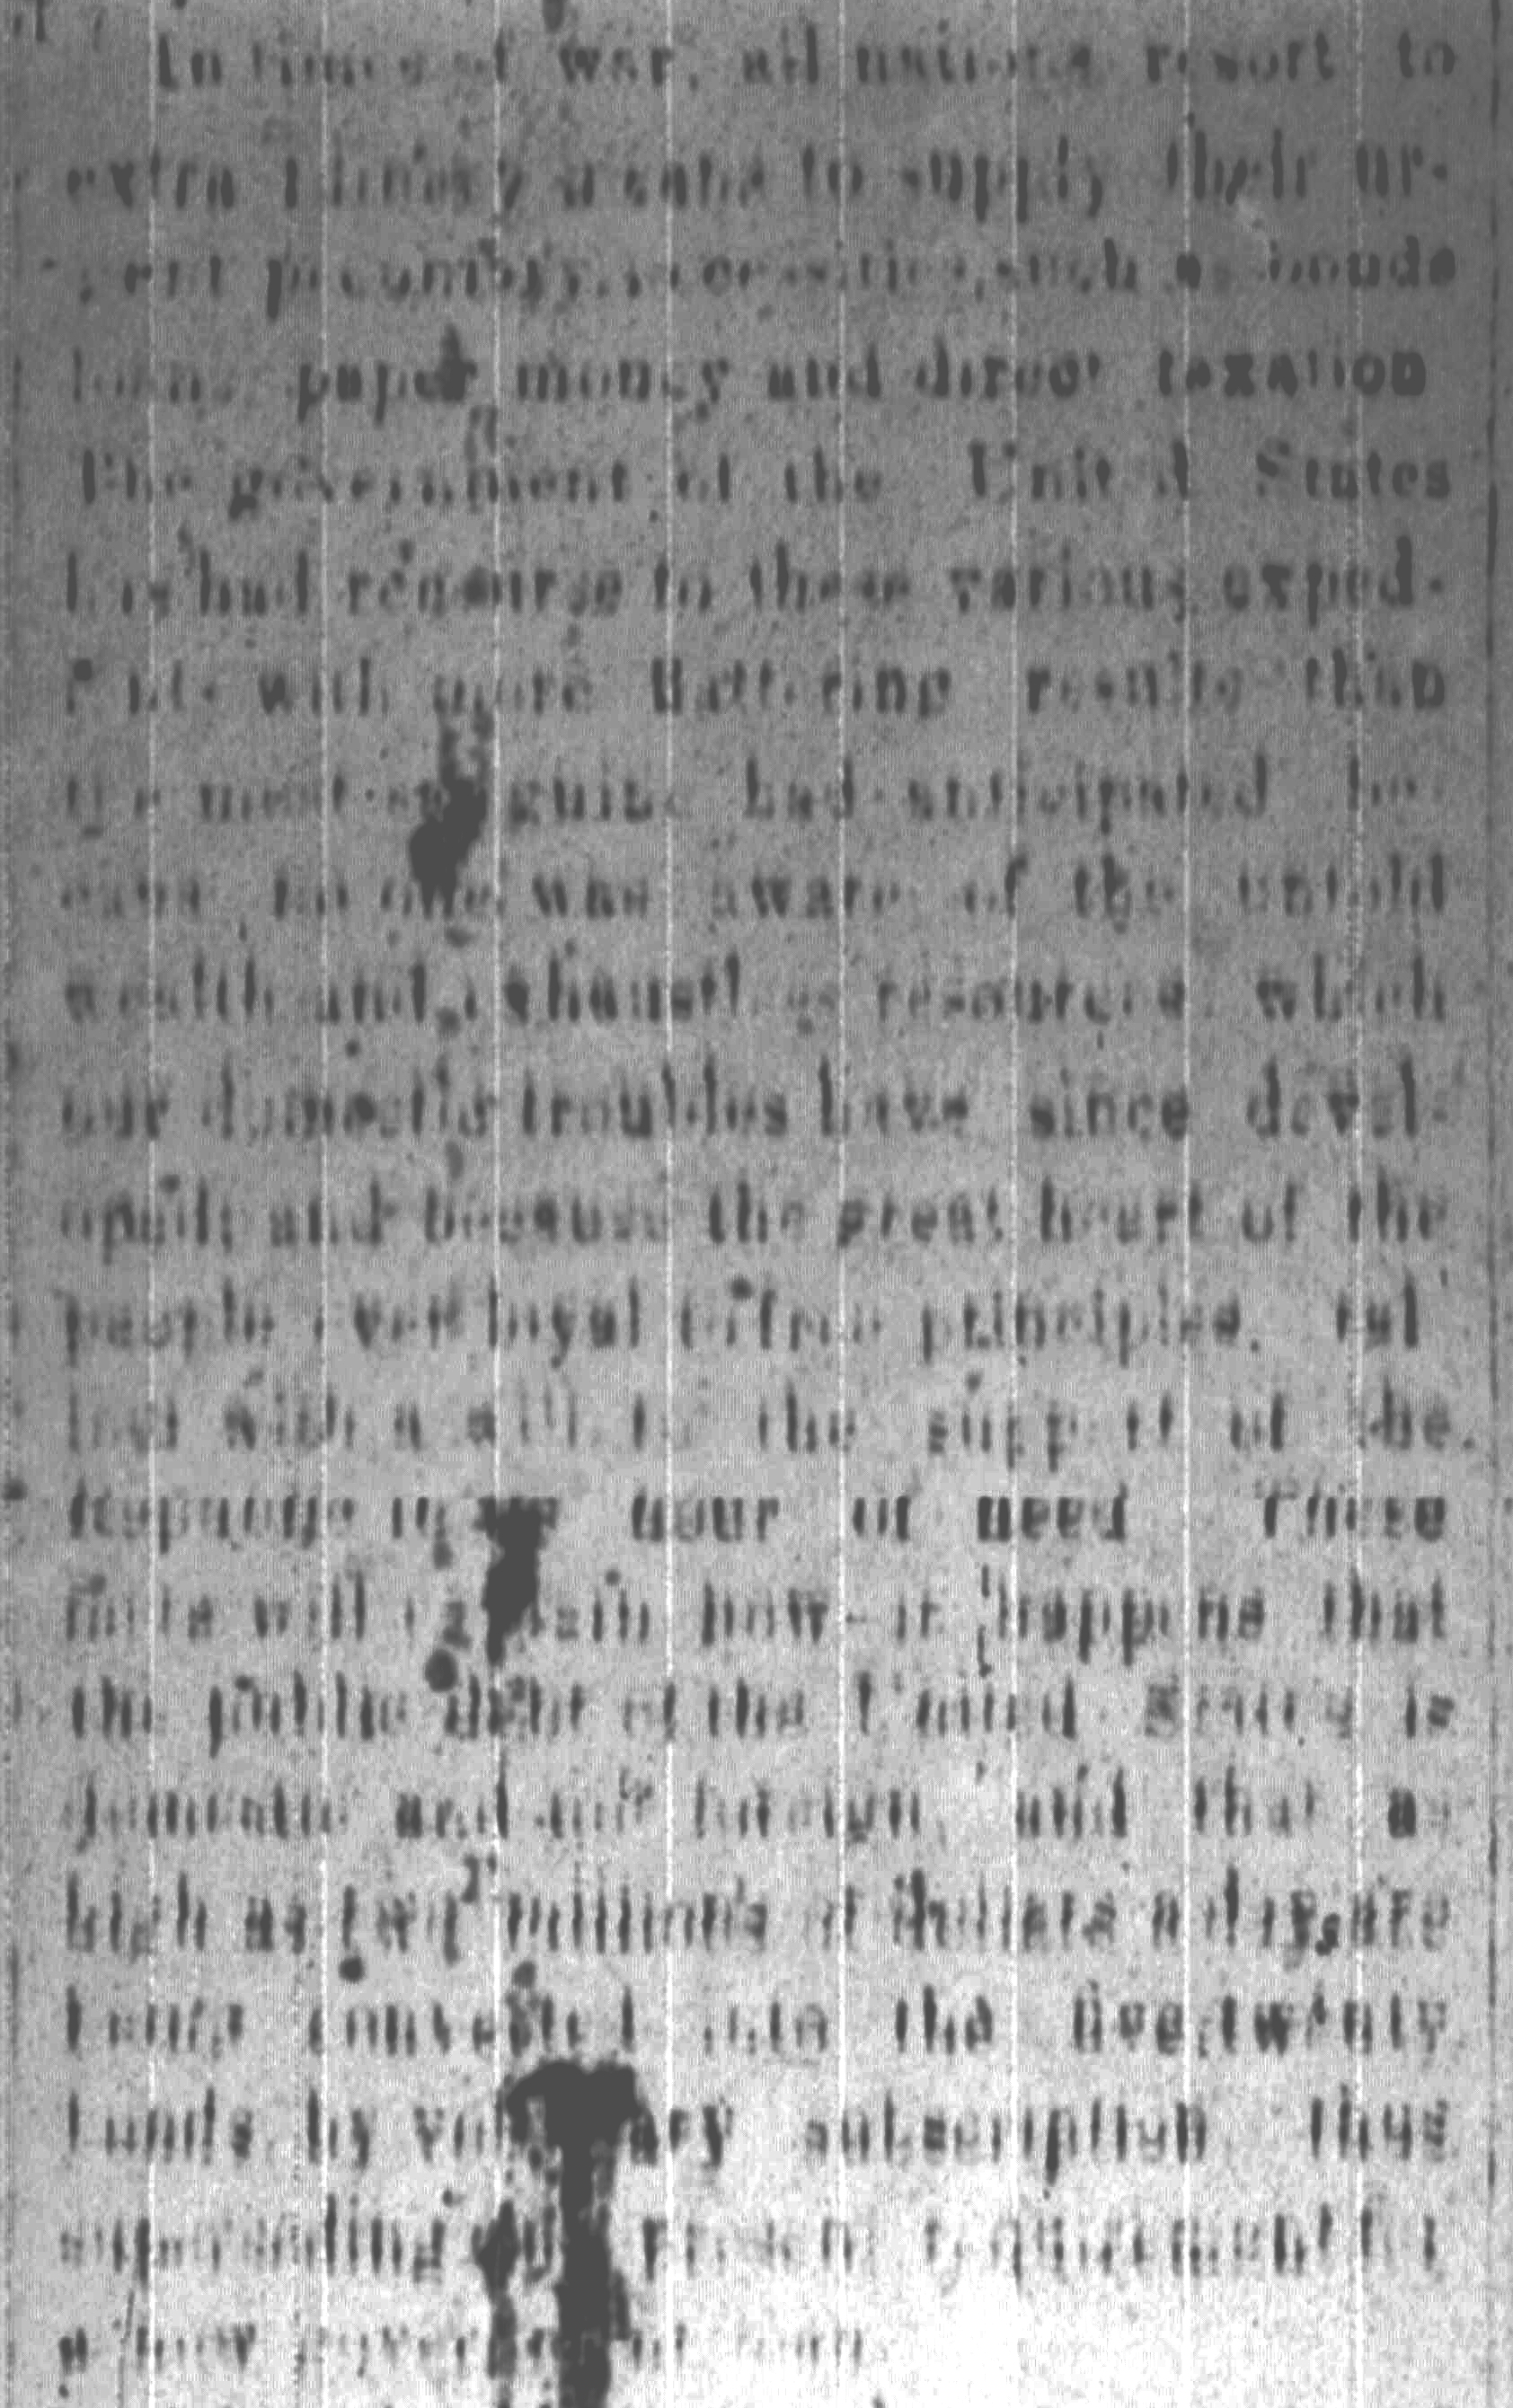 In times of war, all nations resort to
extraordinary means to supply their ur-
gent pecuniary necessities, such as bonds
loans, paper money and direct taxation
The government of the United States
has had recourse to these various exped-
ients with more flattering results than
the most sanguine had anticipated be-
cause no one was aware of the untold
wealth and exhaustless resources which
our domestic troubles have since devel-
oped; and because the great heart of the
people ever loyal to free principles, ral-
lied with a will to the support of the
Republic in its hour of need These
facts will explain how it happens that
the public debt of the United States is
domestic and not foreign, and that as
high as two millions of dollars a day are
being converted into the five-twenty
bonds by voluntary subscription thus
superseding any present requirement for
a new government loan